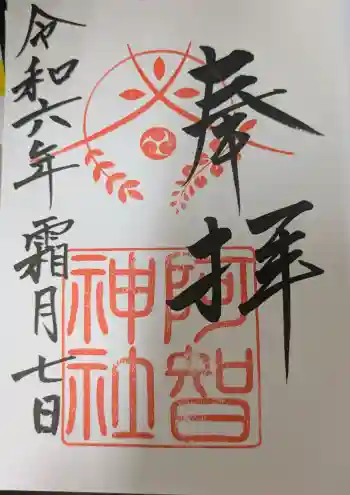 奉拝
阿智
神社
令和六年 霜月 七日